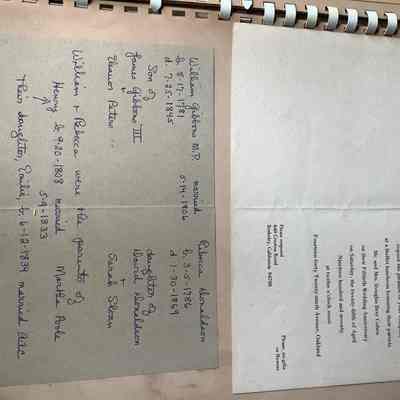 William Gibbons M.D. married Rebecca Donaldson
b. 8-17-1781 5-14-1806 b. 3-5-1786
d. 7-25-1845 d. 1-30-1869
Son of daughter of
James Gibbons III David Donaldson
+ +
Eleanor Peters Sarah Sloan
William & Rebecca were the parents of
Henry b. 9-20-1808 married Martha Poole
5-9-1833
Their daughter, Emilie, b. 6-12-1834 married A.J.C.
at a Buffet luncheon honoring their parents
Mr. and Mrs. Douglas Dyer Cohen
on their Wedding Anniversary
on Saturday, the Twenty-fifth of April
Nineteen hundred and seventy
at twelve o'clock noon
Fourteen forty Twenty-ninth Avenue, Oakland
Please respond
Berkeley, California 94708
Please, no gifts
or flowers